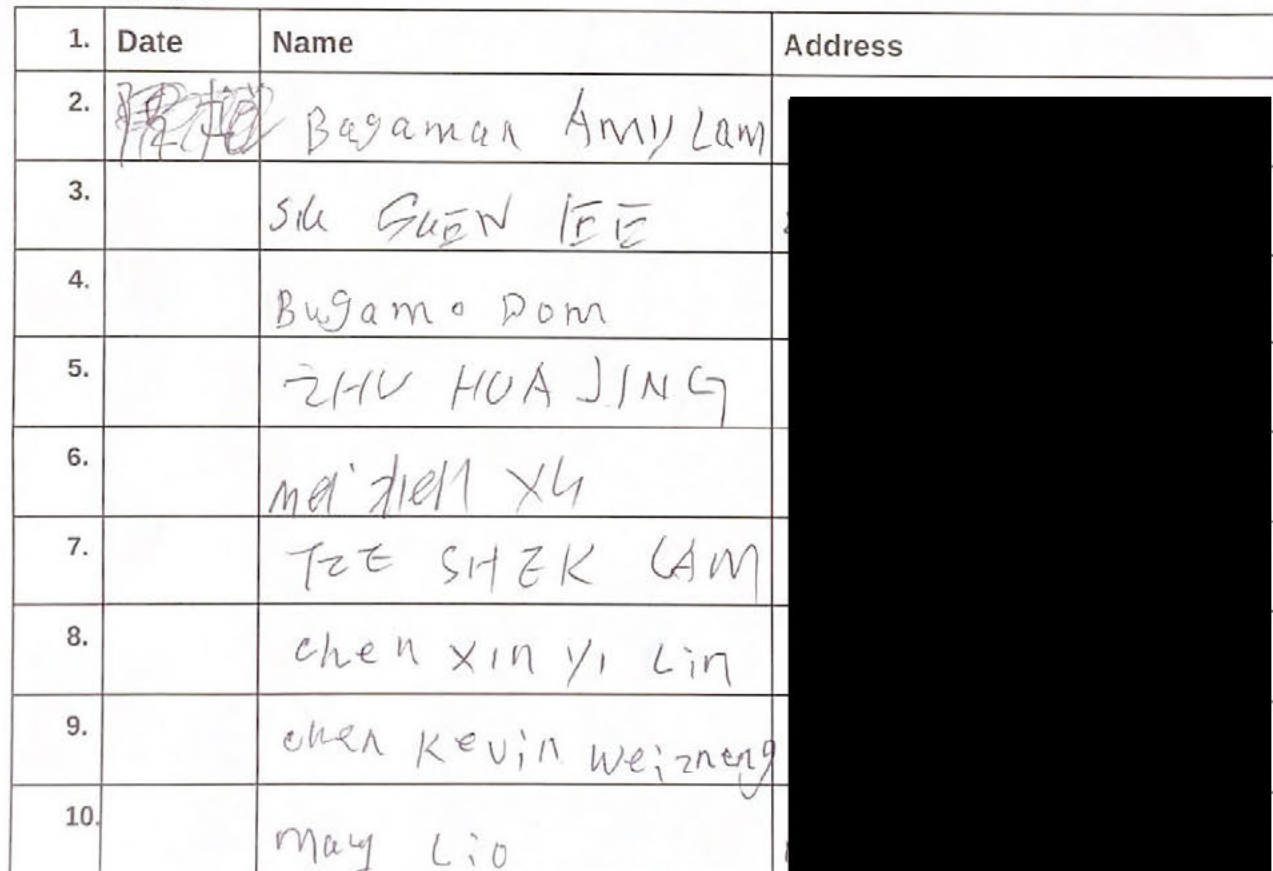 1. Date Name Address
2. Bagaman Amy Lam
3. SIU GUEN LEE
4. Bugamo Dom
5. ZHU HUA JING
6. mei
7. TZE SHEK LAM
8. chen xin yi Lin
9. chen Kevin Weizneng
10. May Lio